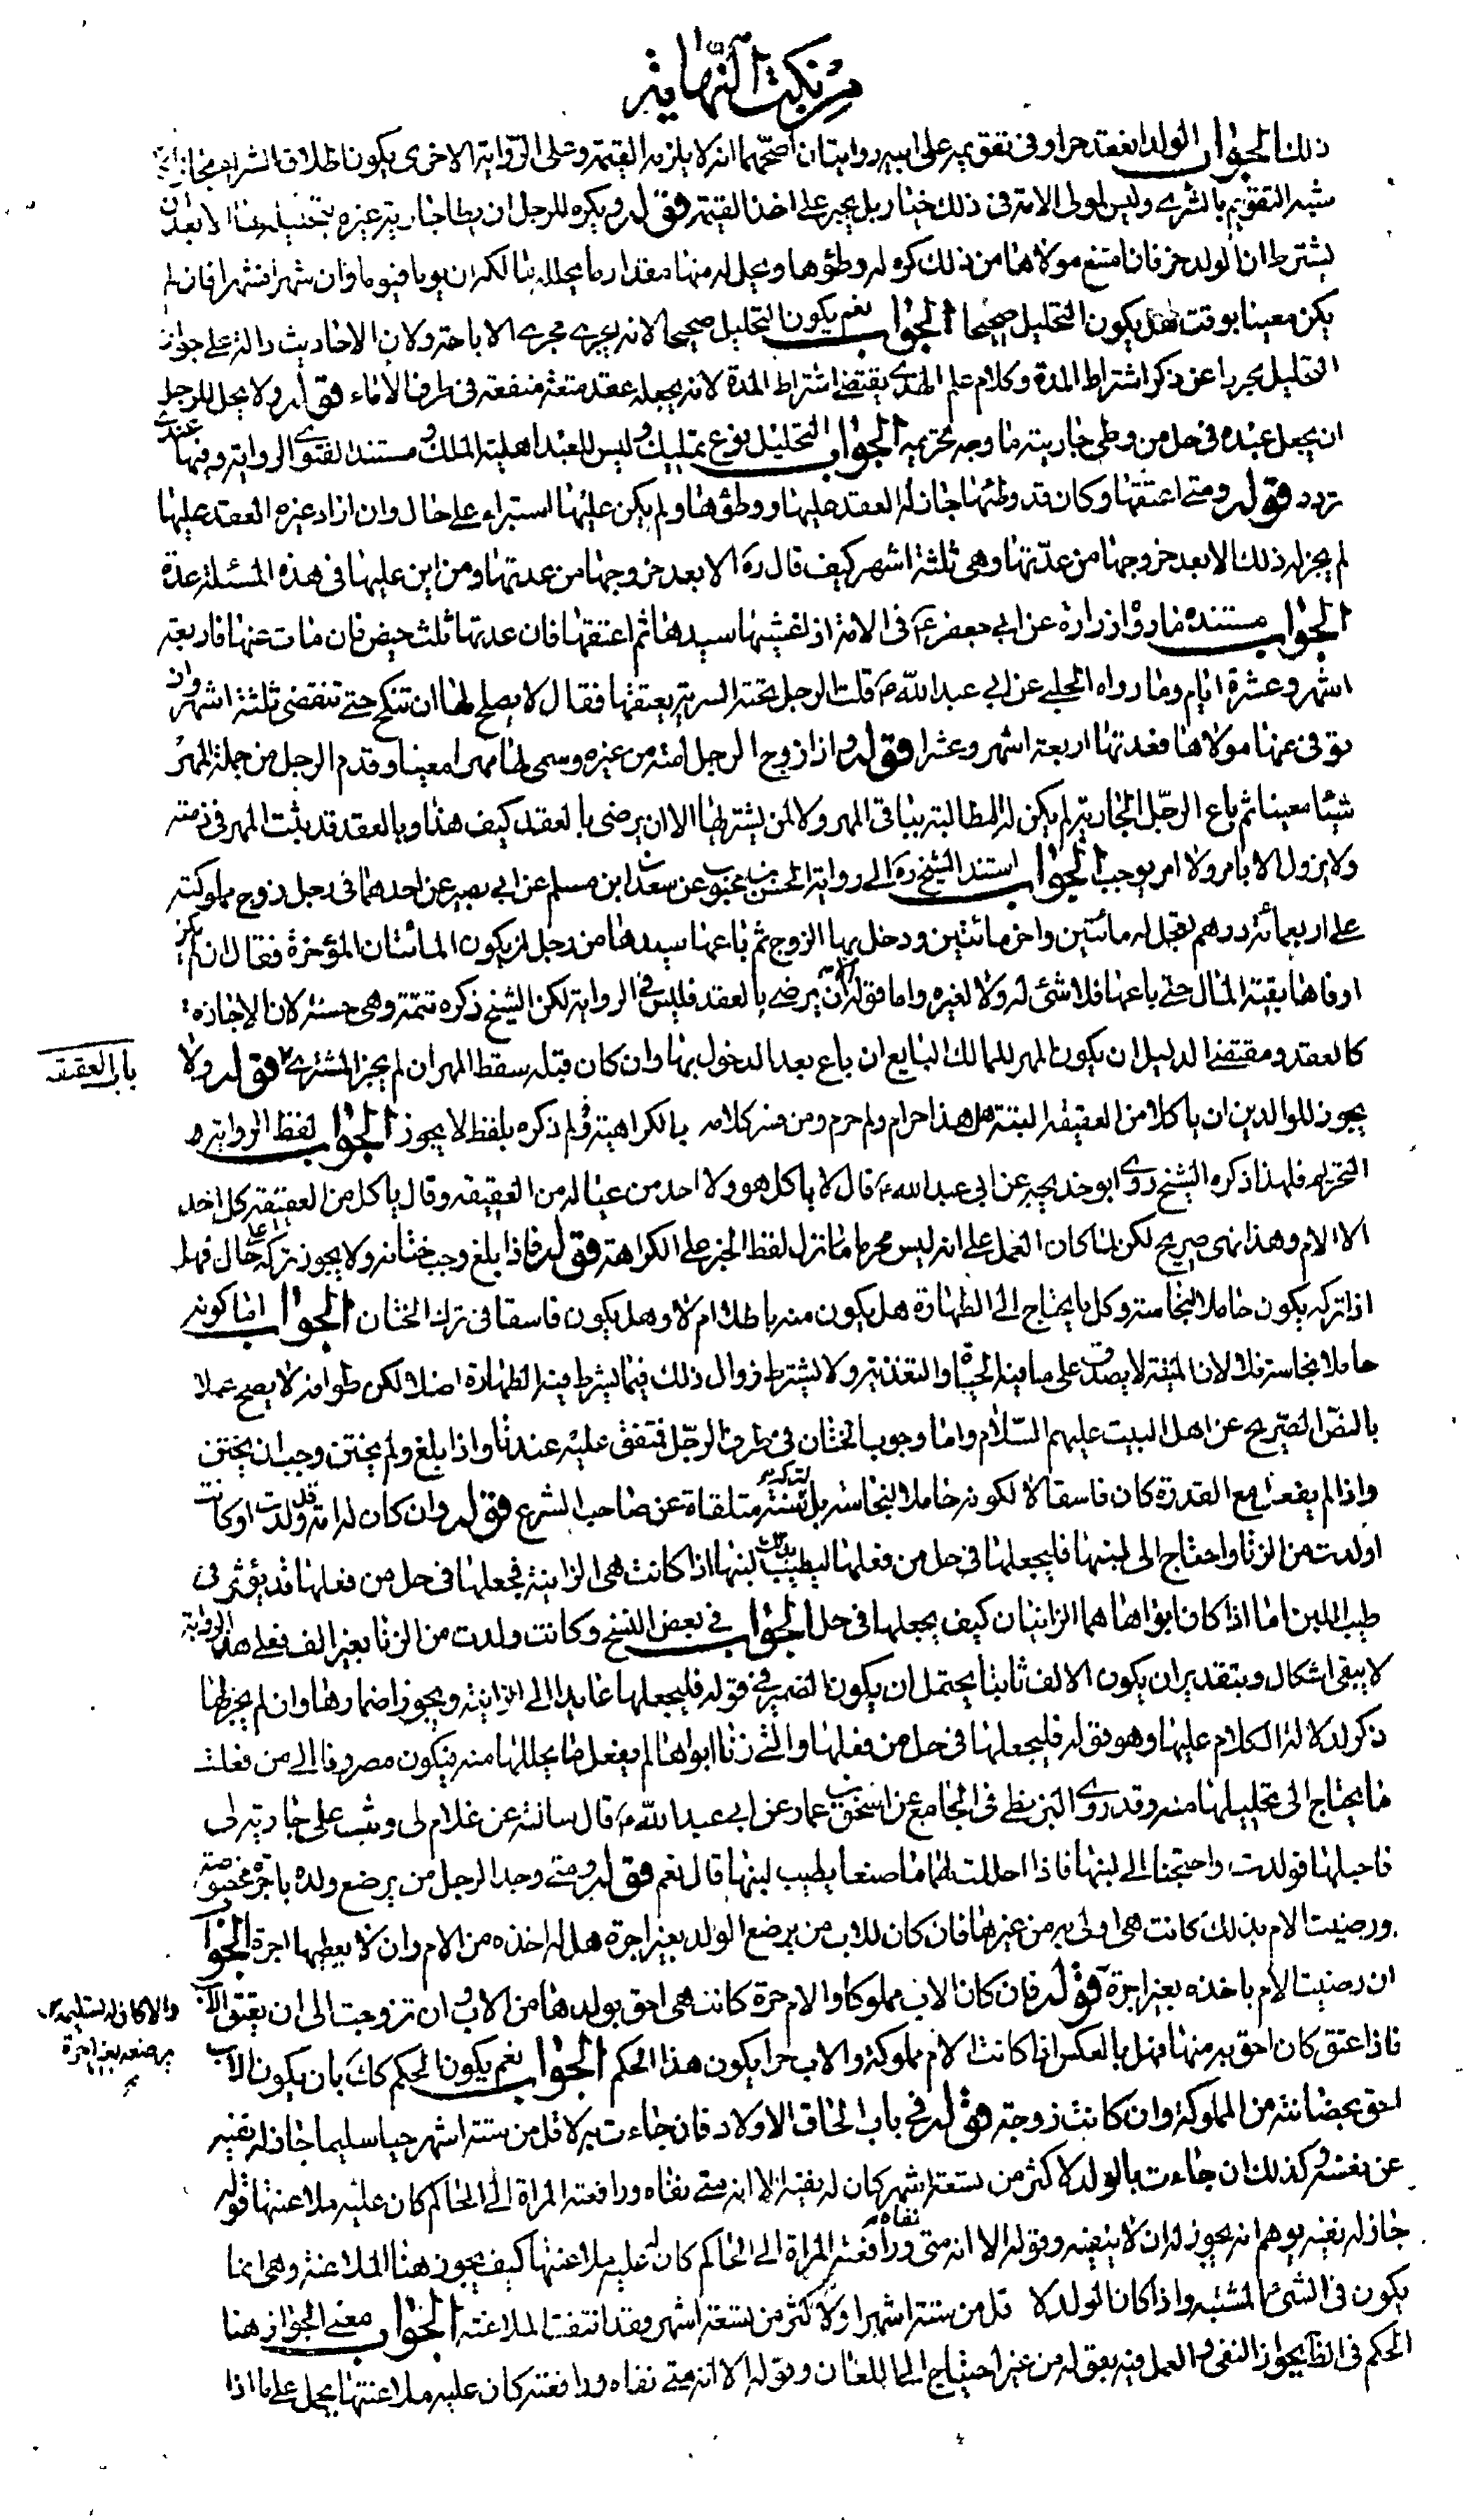 من نكت النهاية
ذلك الجواب الولد انعقد حرا وفى تقويمه على ابيه روايتان اصحهما انه لا يلزمه القيمة وعلى الرواية الاخرى يكون اطلاق الشراء مجازا
شبه التقويم بالشرى وليس لمولى الامة فى ذلك خيار بل يجبر على اخذ القيمة قوله ويكره للرجل ان يطأ جارية غيره بتحليله الا بعد ان
يشترط ان الولد حر فان امتنع مولاها من ذلك كره له وطؤها ويحل له منها مقدار ما يحلله مالكه ان يوما فيوما وان شهرا فشهرا فان لم
يكن معينا بوقت هل يكون التحليل صحيحا الجواب نعم يكون التحليل صحيحا لانه يجرى مجرى الاباحة ولان الاحاديث دالة على جواز
التحليل مجردا عن ذكر اشتراط المدة وكلام علم الهدى يقتضى اشتراط المدة لانه يجعله عقد متعة منفعته فى طرف الاماء قوله ولا يحل للرجل
ان يجعل عبده فى حل من وطى جاريته ما وجه تحريمه الجواب التحليل نوع تمليك وليس للعبد اهلية الملك ومستند الفتوى الرواية وفيها عندى
تردد قوله ومتى اعتقها وكان قد وطئها جاز له العقد عليها ووطؤها ولم يكن عليها استبراء على حال وان اراد غيره العقد عليها
لم يجز له ذلك الا بعد خروجها من عدتها وهى ثلثة اشهر كيف قال ره الا بعد خروجها من عدتها ومن اين عليها فى هذه المسئلة عدة
الجواب مستنده ما رواه زرارة عن ابى جعفر ع فى الامة اذا غشيها سيدها ثم اعتقها فان عدتها ثلث حيض فان مات عنها فاربعة
اشهر وعشرة ايام وما رواه الحلبى عن ابى عبد الله ع قلت الرجل تحته السرية يعتقها فقال لا يصلح لها ان تنكح حتى تنقضى ثلثة اشهر وان
توفى عنها مولاها فعدتها اربعة اشهر وعشرا قوله واذا زوج الرجل امته من غيره وسمى لها مهرا معينا وقدم الرجل من جملة المهر
شيئا معينا ثم باع الرجل الجارية لم يكن له المطالبة بباقى المهر ولا لمن يشتريها الا ان يرضى بالعقد كيف هذا وبالعقد قد يثبت المهر فى ذمته
ولا يزول الا بامر ولا امر يوجب الجواب استند الشيخ ره الى رواية الحسن بن محبوب عن سعدان ابن مسلم عن ابى بصير عن احدهما فى رجل زوج مملوكته
على اربعمائة درهم فعجل له مائتين واخر مائتين ودخل بها الزوج ثم باعها سيدها من رجل لمن يكون المائتان المؤخرة فقال ان لم يكن
اوفاها بقية المال حتى باعها فلا شئ له ولا لغيره واما قوله الا ان يرضى بالعقد فليس فى الرواية لكن الشيخ ذكره تتمة وهى حسنة لان الاجازة
كالعقد ومقتضى الدليل ان يكون المهر للمالك البايع ان باع بعد الدخول بها وان كان قبله سقط المهر ان لم يجز المشترى قوله ولا
باب العقيقة
يجوز للوالدين ان ياكلا من العقيقة البتة هل هذا حرام ولم حرم ومن فسر كلامه بالكراهية فلم ذكره بلفظ لا يجوز الجواب لفظ الرواية
التحريم فلهذا ذكره الشيخ روى ابو خديجة عن ابى عبد الله ع قال لا ياكل هو ولا احد من عياله من العقيقة وقال ياكل من العقيقة كل احد
الا الام وهذا نهى صريح لكن لما كان العمل على انه ليس محرما نزل لفظ الخبر على الكراهة قوله فاذا بلغ وجب ختانه ولا يجوز تركه على حال فهل
اذا تركه يكون حاملا لنجاسة وكل ما يحتاج الى الطهارة هل يكون منه باطلا ام لا وهل يكون فاسقا فى ترك الختان الجواب اما كونه
حاملا نجاسة فلا لان الميتة لا يصدق على ما فيه الحياة والتغذية ولا يشترط زوال ذلك فيما يشترط فيه الطهارة اصلا لكن طوافه لا يصح عملا
بالنص الصريح عن اهل البيت عليهم السلام واما وجوب الختان فى طرف الرجل فمتفق عليه عندنا واذا بلغ ولم يختن وجب ان يختن
واذا لم يفعل مع القدرة كان فاسقا لا لكونه حاملا لنجاسة بل لتركه سنة متلقاة عن صاحب الشرع قوله وان كان له امة قد ولدت او كانت
اولدت من الزنا واحتاج الى لبنها فليجعلها فى حل من فعلها ليطيب بذلك لبنها اذا كانت هى الزانية فجعلها فى حل من فعلها قد يؤثر فى
طيب اللبن اما اذا كان ابواها هما الزانيان كيف يجعلها فى حل الجواب فى بعض النسخ وكانت ولدت من الزنا بغير الف فعلى هذه الرواية
لا يبقى اشكال وبتقدير ان يكون الالف ثابتا يحتمل ان يكون الضمير فى قوله فليجعلها عايدا الى الزانية ويجوز اضمارها وان لم يجر لها
ذكر لدلالة الكلام عليها وهو قوله فليجعلها فى حل من فعلها والتى زنا ابواها لم يفعل ما يحللها منه فيكون مصروفا الى من فعلت
ما يحتاج الى تحليلها منه وقد روى البزنطى فى الجامع عن اسحق بن عمار عن ابى عبد الله ع قال سالته عن غلام لى وثب على جارية لى
فاحبلها فولدت واحتجنا الى لبنها فاذا احللت لهما ما صنعا يطيب لبنها قال نعم قوله ومتى وجد الرجل من يرضع ولده باجرة مخصوصة
ورضيت الام بذلك كانت هى اولى به من غيرها فان كان للاب من يرضع الولد بغير اجرة هل له اخذه من الام وان لا يعطيها اجرة الجواب
ان رضيت الام باخذه بغير اجرة قوله فان كان الاب مملوكا والام حرة كانت هى احق بولدها من الاب وان تزوجت الى ان يعتق الاب
والا كان له تسليمه الى من
يرضعه بغير اجرة
فاذا عتق كان احق به منها فهل بالعكس اذا كانت الام مملوكة والاب حرا يكون هذا الحكم الجواب نعم يكون الحكم كك بان يكون الاب
احق بحضانته من المملوكة وان كانت زوجته قوله فى باب الحاق الاولاد فان جاءت به لاقل من ستة اشهر حيا سليما جاز له نفيه
عن نفسه وكذلك ان جاءت بالولد لاكثر من تسعة اشهر كان له نفيه الا انه متى نفاه ورافعته المراة الى الحاكم كان عليه ملاعنتها قوله
جاز له نفيه يوهم انه يجوز له ان لا ينفيه وقوله الا انه متى نفاه ورافعته المراة الى الحاكم كان عليه ملاعنتها كيف يجوز هنا الملاعنة وهى انما
يكون فى الشئ المشتبه واذا كان الولد لاقل من ستة اشهر او لاكثر من تسعة اشهر فقد انتفت الملاعنة الجواب معنى الجواز هنا
الحكم فى الظ بجواز النفى والعمل فيه بقوله من غير احتياج الى اللعان وقوله الا انه متى نفاه ورافعته كان عليه ملاعنتها يحمل على ما اذا